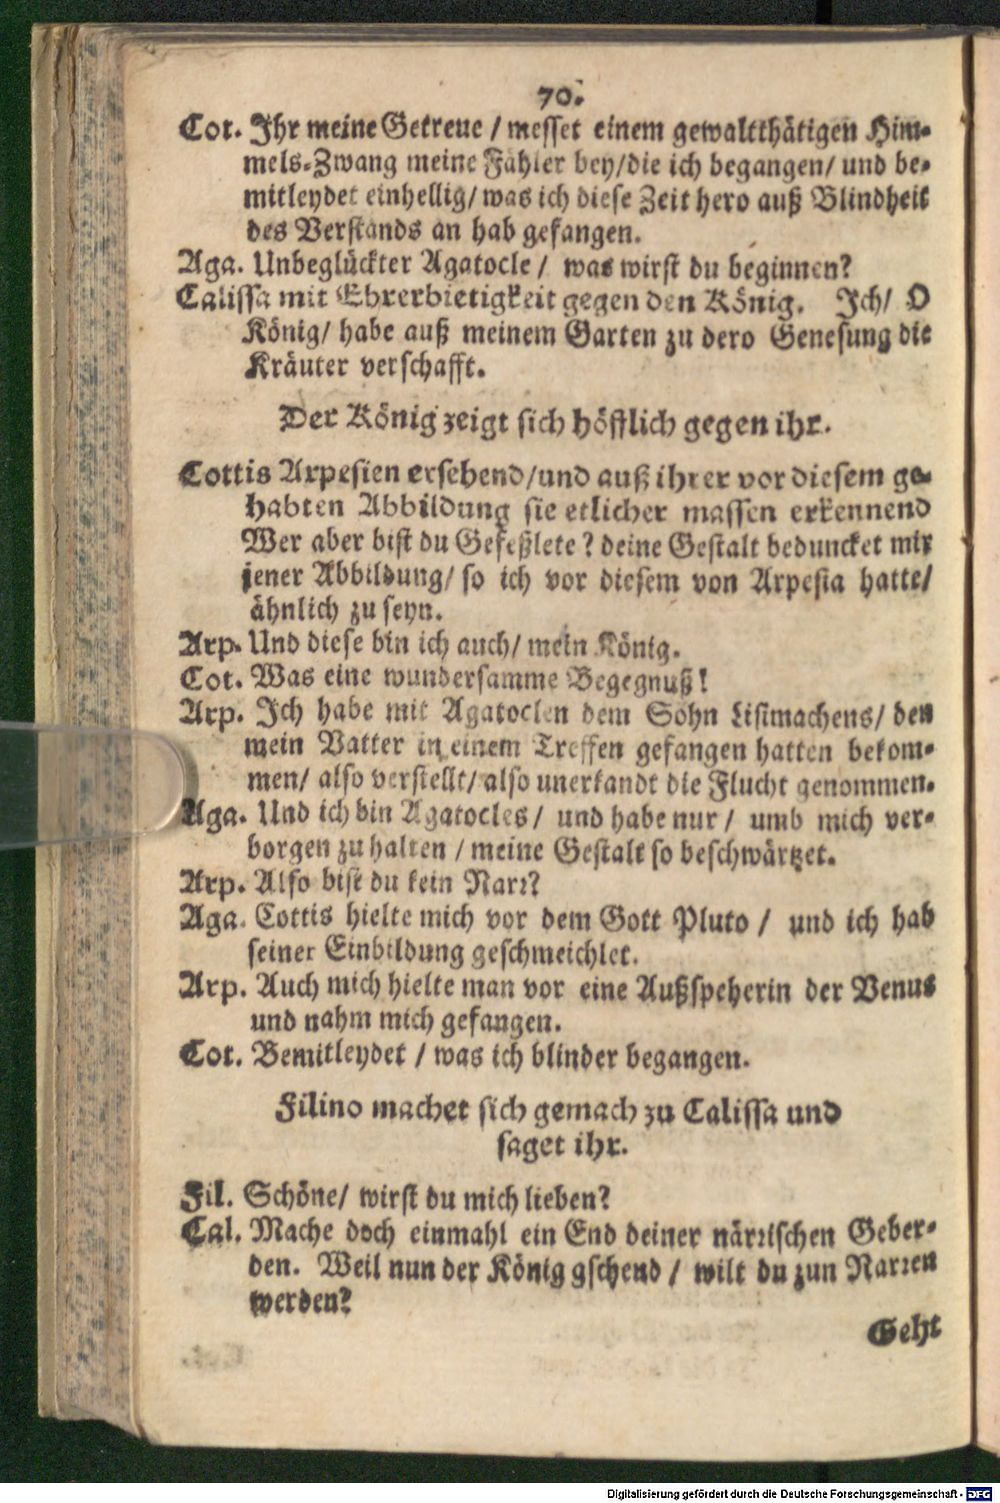 70.
Cot. Ihr meine Getreue / messet einem gewaltthätigen Him-
mels-Zwang meine Fähler bey/die ich begangen/ und be-
mitleydet einhellig/ was ich diese Zeit hero auß Blindheit
des Verstands an hab gefangen.
Aga. Unbeglückter Agatocle / was wirst du beginnen?
Calissa mit Ehrerbietigkeit gegen den König. Ich/ O
König/ habe auß meinem Garten zu dero Genesung die
Kräuter verschafft.
Der König zeigt sich höfflich gegen ihr.
Cottis Arpesien ersehend/und auß ihrer vor diesem ge-
habten Abbildung sie etlicher massen erkennend
Wer aber bist du Gefeßlete? deine Gestalt beduncket mir
jener Abbildung/ so ich vor diesem von Arpesia hatte/
ähnlich zu seyn.
Arp. Und diese bin ich auch/ mein König.
Cot. Was eine wundersamme Begegnuß!
Arp. Ich habe mit Agatoclen dem Sohn Lisimachens/ den
mein Vatter in einem Treffen gefangen hatten bekom-
men/ also verstellt/ also unerkandt die Flucht genommen.
Aga. Und ich bin Agatocles / und habe nur / umb mich ver-
borgen zu halten / meine Gestalt so beschwärtzet.
Arp. Also bist du kein Narr?
Aga. Cottis hielte mich vor dem Gott Pluto / und ich hab
seiner Einbildung geschmeichlet.
Arp. Auch mich hielte man vor eine Außspeherin der Venus
und nahm mich gefangen.
Cot. Bemitleydet / was ich blinder begangen.
Filino machet sich gemach zu Calissa und
saget ihr.
Fil. Schöne/ wirst du mich lieben?
Cal. Mache doch einmahl ein End deiner närrischen Geber-
den. Weil nun der König gschend / wilt du zun Narren
werden?
Geht
Digitalisierung gefördert durch die Deutsche Forschungsgemeinschaft - DFG